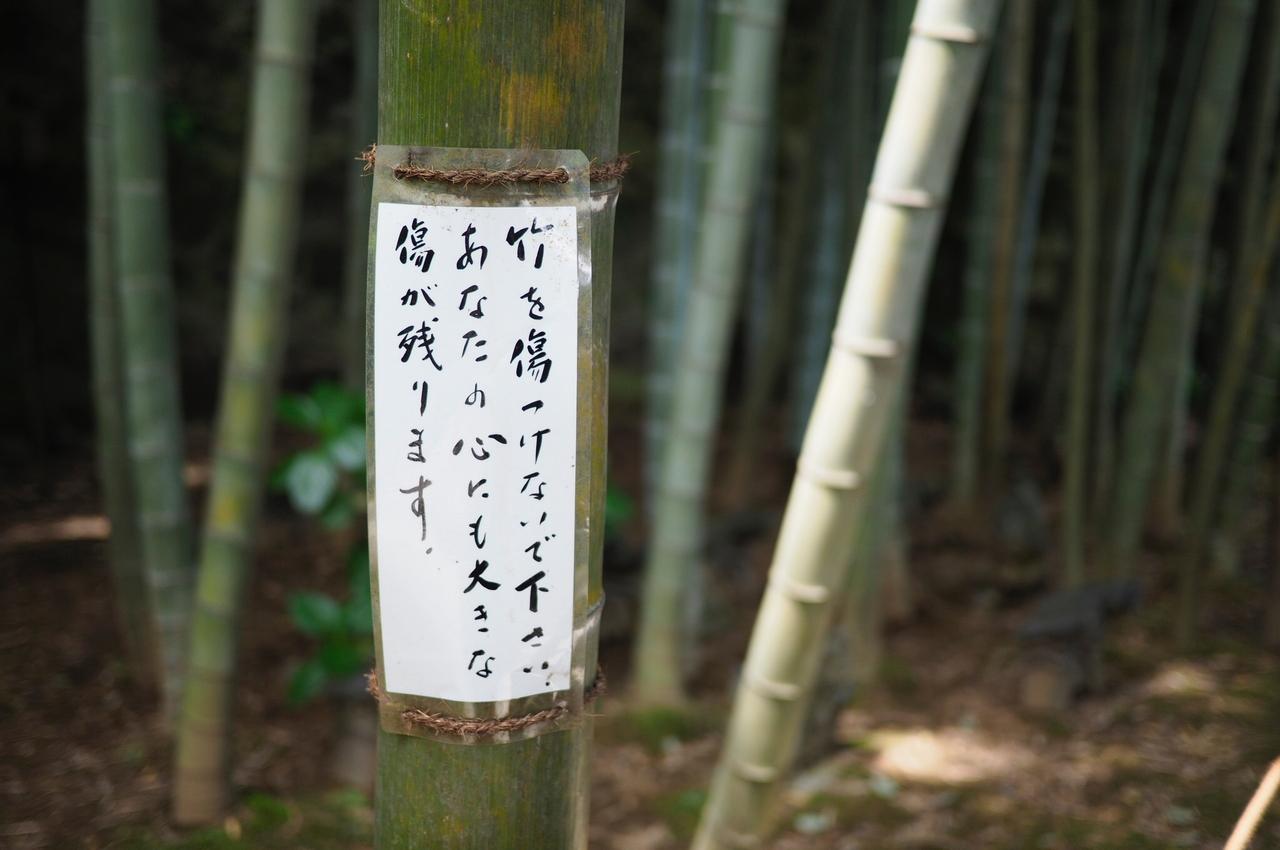 竹を傷つけないで下さい.
あなたの心にも大きな
傷が残ります.